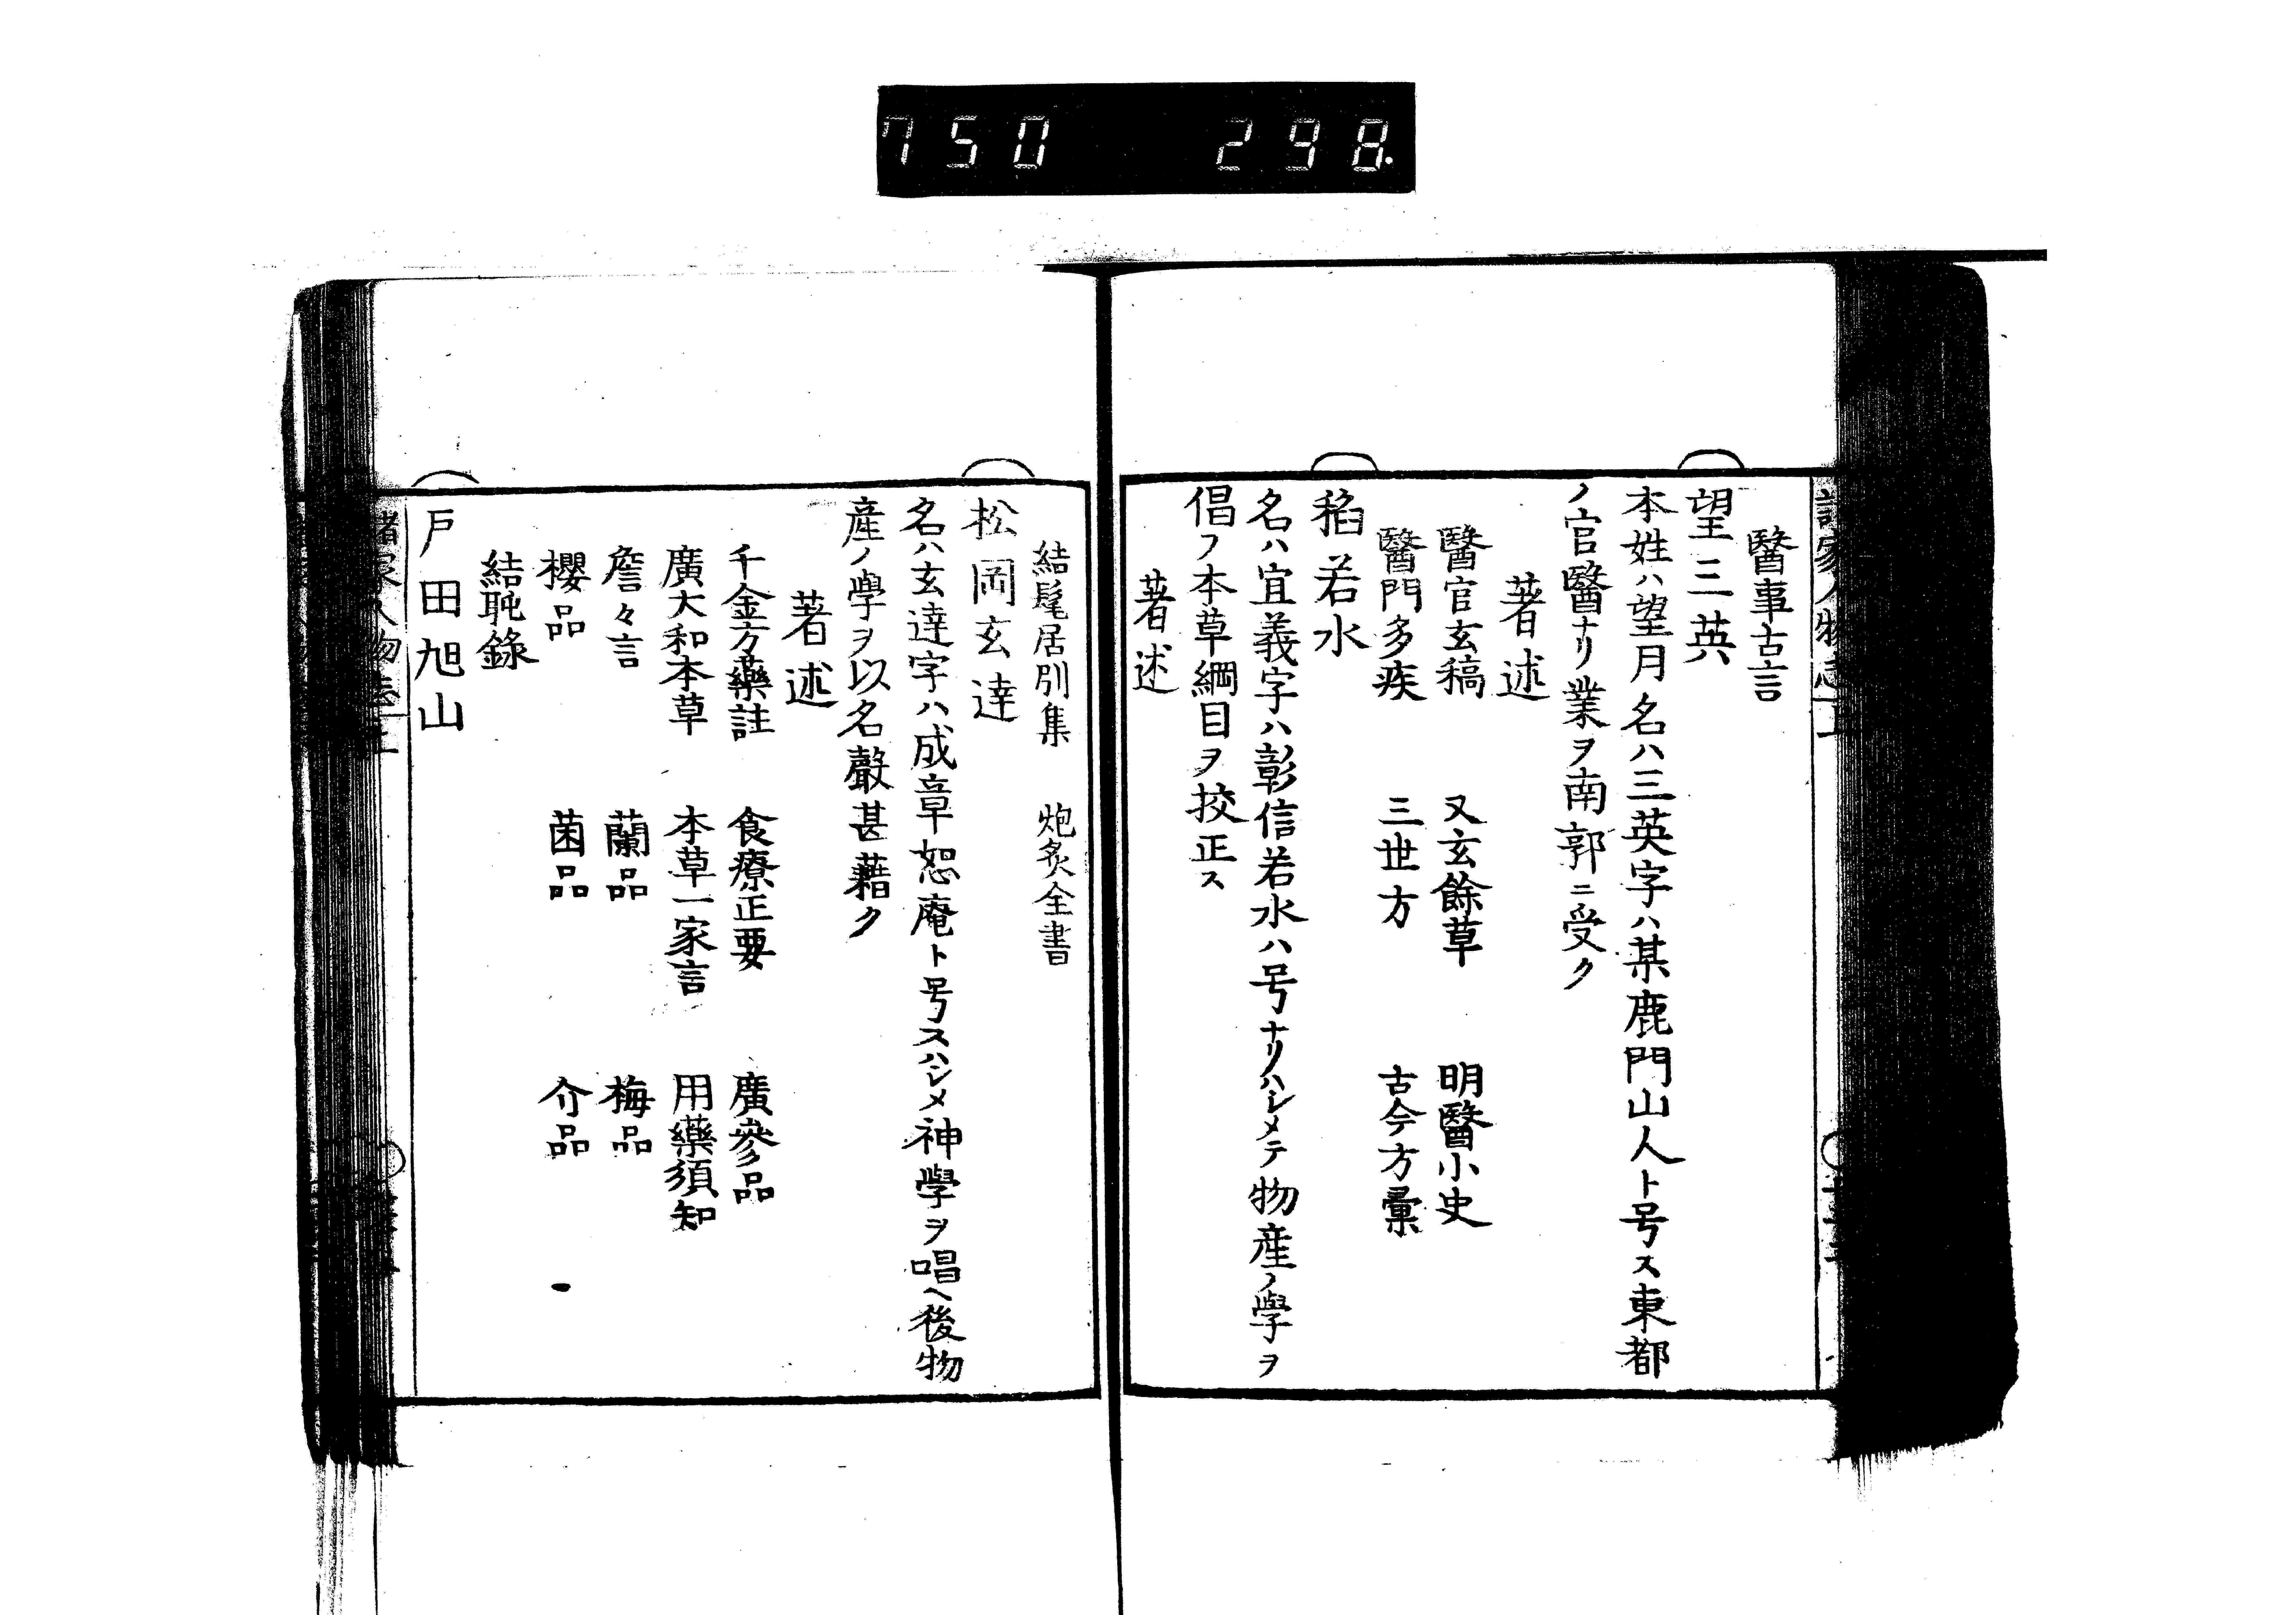 750 298.
醫事古言
望三英
本姓ハ望月名ハ三英字ハ某鹿門山人ト号ス東都
ノ官醫ナリ業ヲ南郭ニ受ク
著述
醫官玄稿 又玄餘草 明醫小史
醫門多疾 三世方 古今方彙
稻若水
名ハ宜義字ハ彰信若水ハ号ナリハシメテ物産ノ學ヲ
倡フ本草綱目ヲ挍正ス
著述
結髦居別集 炮炙全書
松岡玄達
名ハ玄達字ハ成章恕庵ト号スハシメ神學ヲ唱ヘ後物
産ノ學ヲ以名聲甚藉ク
著述
千金方藥註 食療正要 廣參品
廣大和本草 本草一家言 用藥須知
詹々言 蘭品 梅品
櫻品 菌品 介品
結毦錄
戸田旭山
諸家人物志上